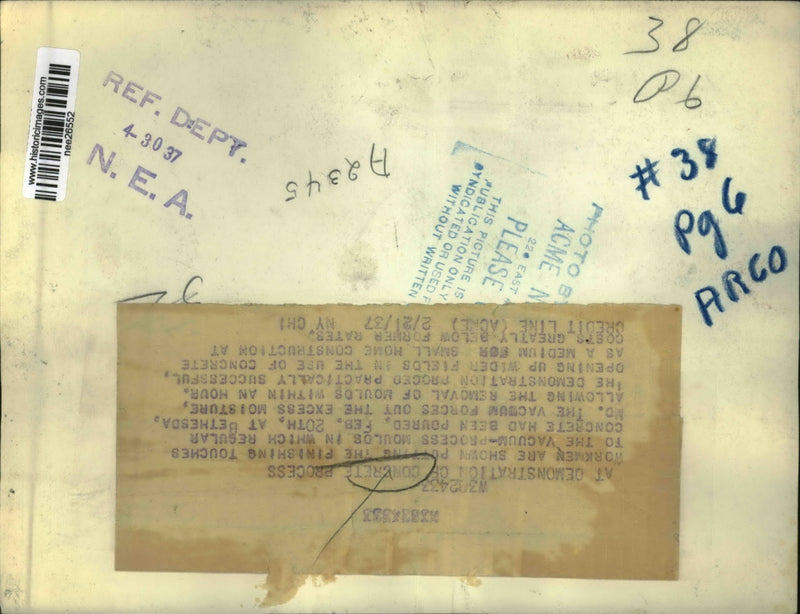 www.historicimages.com
nee26552
REF. DEPT.
4-30 37
N. E. A.
A2345
38
P6
# 38
Pg 6
ARGO
THIS PICTURE IS
PUBLICATION ONLY
SYNDICATED OR USED F
WITHOUT WRITTEN
PHOTO B
ACME N
220 EAST
PLEASE
W302433
AT DEMONSTRATION OF CONCRETE PROCESS
WORKMEN ARE SHOWN PUTTING THE FINISHING TOUCHES
TO THE VACUUM-PROCESS MOULDS IN WHICH REGULAR
CONCRETE HAD BEEN POURED, FEB. 20TH, AT BETHESDA,
MD. THE VACUUM FORCES OUT THE EXCESS MOISTURE,
ALLOWING THE REMOVAL OF MOULDS WITHIN AN HOUR.
THE DEMONSTRATION PROCED PRACTICALLY SUCCESSFUL,
OPENING UP WIDER FIELDS IN THE USE OF CONCRETE
AS A MEDIUM FOR SMALL HOME CONSTRUCTION AT
COSTS GREATLY BELOW FORMER RATES.
CREDIT LINE (ACME) 2/21/37 NY CHI